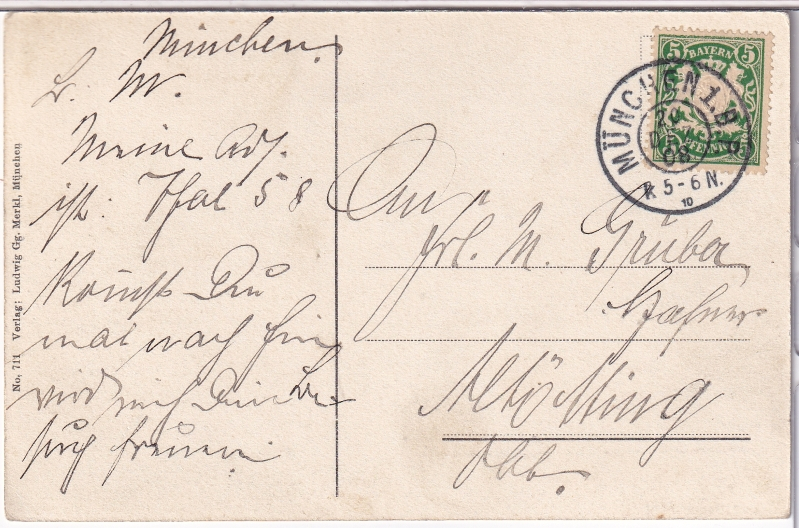 München.
L. M.
Meine Adr.
ist: Thal 58
Kommst Du
mal nach hier
wird mich Dein Be-
such freuen.
No. 711 Verlag: Ludwig Gg. Merkl, München
5 BAYERN 5
PFENNIG
MÜNCHEN 1. B.P.
DEZ
08
R 5-6 N.
10
An
Frl. M. Gruber
Hafner
Altötting
Obb.